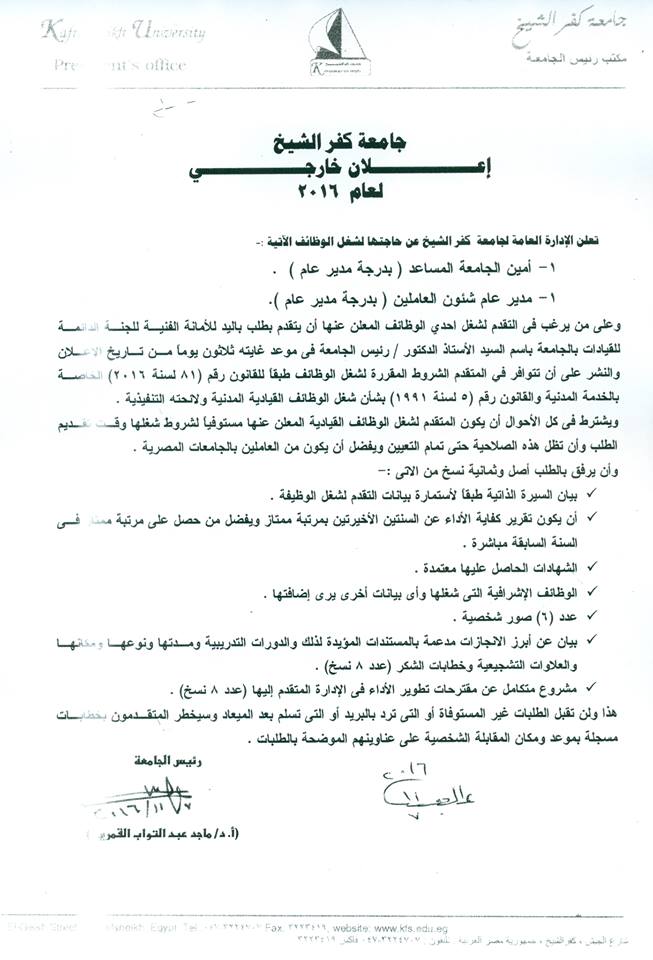 Kafrelsheikh University
President's office
جامعة كفر الشيخ
مكتب رئيس الجامعة
جامعة كفر الشيخ
إعـــلان خارجـــي
لعام ٢٠١٦
تعلن الإدارة العامة لجامعة كفر الشيخ عن حاجتها لشغل الوظائف الآتية :-
١- أمين الجامعة المساعد ( بدرجة مدير عام ) .
١- مدير عام شئون العاملين ( بدرجة مدير عام ).
وعلى من يرغب فى التقدم لشغل احدي الوظائف المعلن عنها أن يتقدم بطلب باليد للأمانة الفنية للجنة الدائمة
للقيادات بالجامعة باسم السيد الأستاذ الدكتور / رئيس الجامعة فى موعد غايته ثلاثون يوماً من تاريخ الاعلان
والنشر على أن تتوافر في المتقدم الشروط المقررة لشغل الوظائف طبقاً للقانون رقم (٨١ لسنة ٢٠١٦) الخاصة
بالخدمة المدنية والقانون رقم (٥ لسنة ١٩٩١) بشأن شغل الوظائف القيادية المدنية ولائحته التنفيذية .
ويشترط فى كل الأحوال أن يكون المتقدم لشغل الوظائف القيادية المعلن عنها مستوفياً لشروط شغلها وقت تقديم
الطلب وأن تظل هذه الصلاحية حتى تمام التعيين ويفضل أن يكون من العاملين بالجامعات المصرية .
وأن يرفق بالطلب أصل وثمانية نسخ من الاتى :-
✓ بيان السيرة الذاتية طبقاً لأستمارة بيانات التقدم لشغل الوظيفة .
✓ أن يكون تقرير كفاية الأداء عن السنتين الأخيرتين بمرتبة ممتاز ويفضل من حصل على مرتبة ممتاز فى
السنة السابقة مباشرة .
✓ الشهادات الحاصل عليها معتمدة .
✓ الوظائف الإشرافية التى شغلها وأى بيانات أخرى يرى إضافتها .
✓ عدد (٦) صور شخصية .
✓ بيان عن أبرز الانجازات مدعمة بالمستندات المؤيدة لذلك والدورات التدريبية ومدتها ونوعها ومكانها
والعلاوات التشجيعية وخطابات الشكر (عدد ٨ نسخ) .
✓ مشروع متكامل عن مقترحات تطوير الأداء فى الإدارة المتقدم إليها (عدد ٨ نسخ) .
هذا ولن تقبل الطلبات غير المستوفاة أو التى ترد بالبريد أو التى تسلم بعد الميعاد وسيخطر المتقدمون بخطابات
مسجلة بموعد ومكان المقابلة الشخصية على عناوينهم الموضحة بالطلبات .
رئيس الجامعة
٢٠١٦/١١/٧
٢٠١٦
١١
٧
(أ.د/ ماجد عبد التواب القمرى)
El-Geish Street, Kafrsheikh, Egypt. Tel: ٠٤٧-٣٢٢٤٧٠٧ Fax: ٣٢٢٣٤١٩, website: www.kfs.edu.eg
شارع الجيش ، كفرالشيخ ، جمهورية مصر العربية ، تليفون : ٠٤٧-٣٢٢٤٧٠٧ فاكس ٣٢٢٣٤١٩